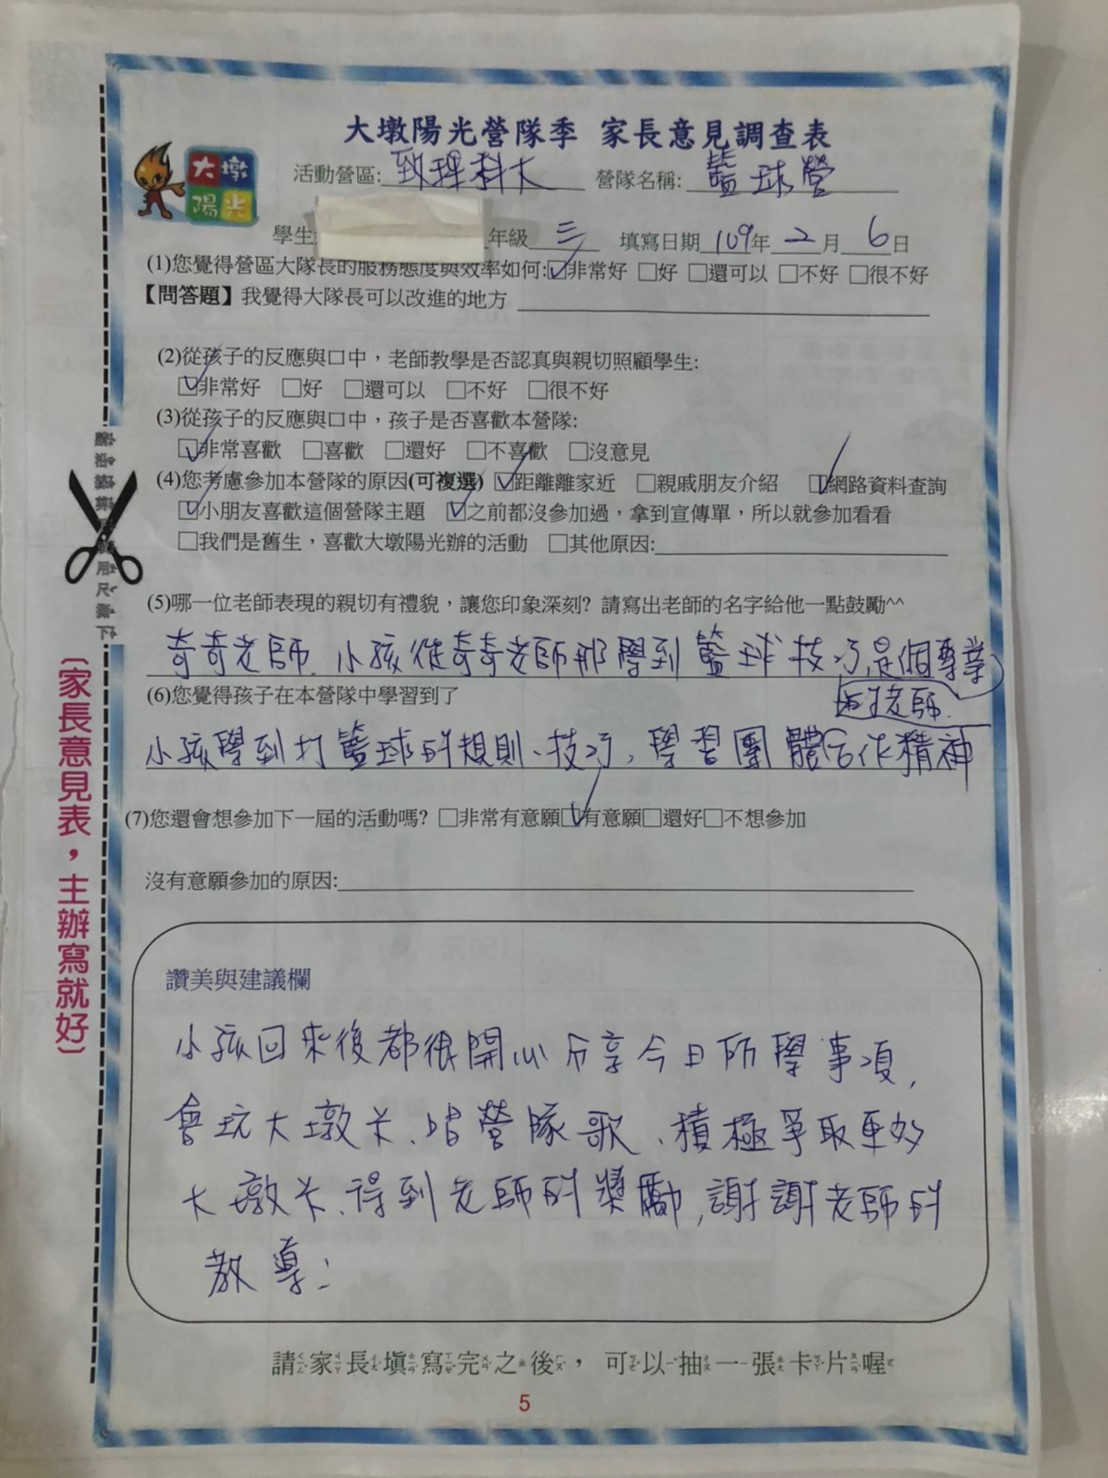 大墩陽光營隊季 家長意見調查表
大墩
陽光
活動營區:致理科大 營隊名稱:籃球營
學生 年級 三 填寫日期 109年 2 月 6 日
(1)您覺得營區大隊長的服務態度與效率如何:☑非常好 □好 □還可以 □不好 □很不好
【問答題】我覺得大隊長可以改進的地方
(2)從孩子的反應與口中,老師教學是否認真與親切照顧學生:
☑非常好 □好 □還可以 □不好 □很不好
(3)從孩子的反應與口中,孩子是否喜歡本營隊:
☑非常喜歡 □喜歡 □還好 □不喜歡 □沒意見
(4)您考慮參加本營隊的原因(可複選) ☑距離離家近 □親戚朋友介紹 ☑網路資料查詢
☑小朋友喜歡這個營隊主題 ☑之前都沒參加過,拿到宣傳單,所以就參加看看
□我們是舊生,喜歡大墩陽光辦的活動 □其他原因:
(5)哪一位老師表現的親切有禮貌,讓您印象深刻? 請寫出老師的名字給他一點鼓勵^^
奇奇老師、小孩從奇奇老師那學到籃球技巧,是個專業
老師.
(6)您覺得孩子在本營隊中學習到了
小孩學到打籃球的規則、技巧,學習團體合作精神
(7)您還會想參加下一屆的活動嗎? □非常有意願☑有意願□還好□不想參加
沒有意願參加的原因:
讚美與建議欄
小孩回來後都很開心分享今日所學事項,
會玩大墩卡、唱營隊歌、積極爭取更好
大墩卡、得到老師的獎勵,謝謝老師的
教導!
請家長填寫完之後,可以抽一張卡片喔
5
〔家長意見表,主辦寫就好〕